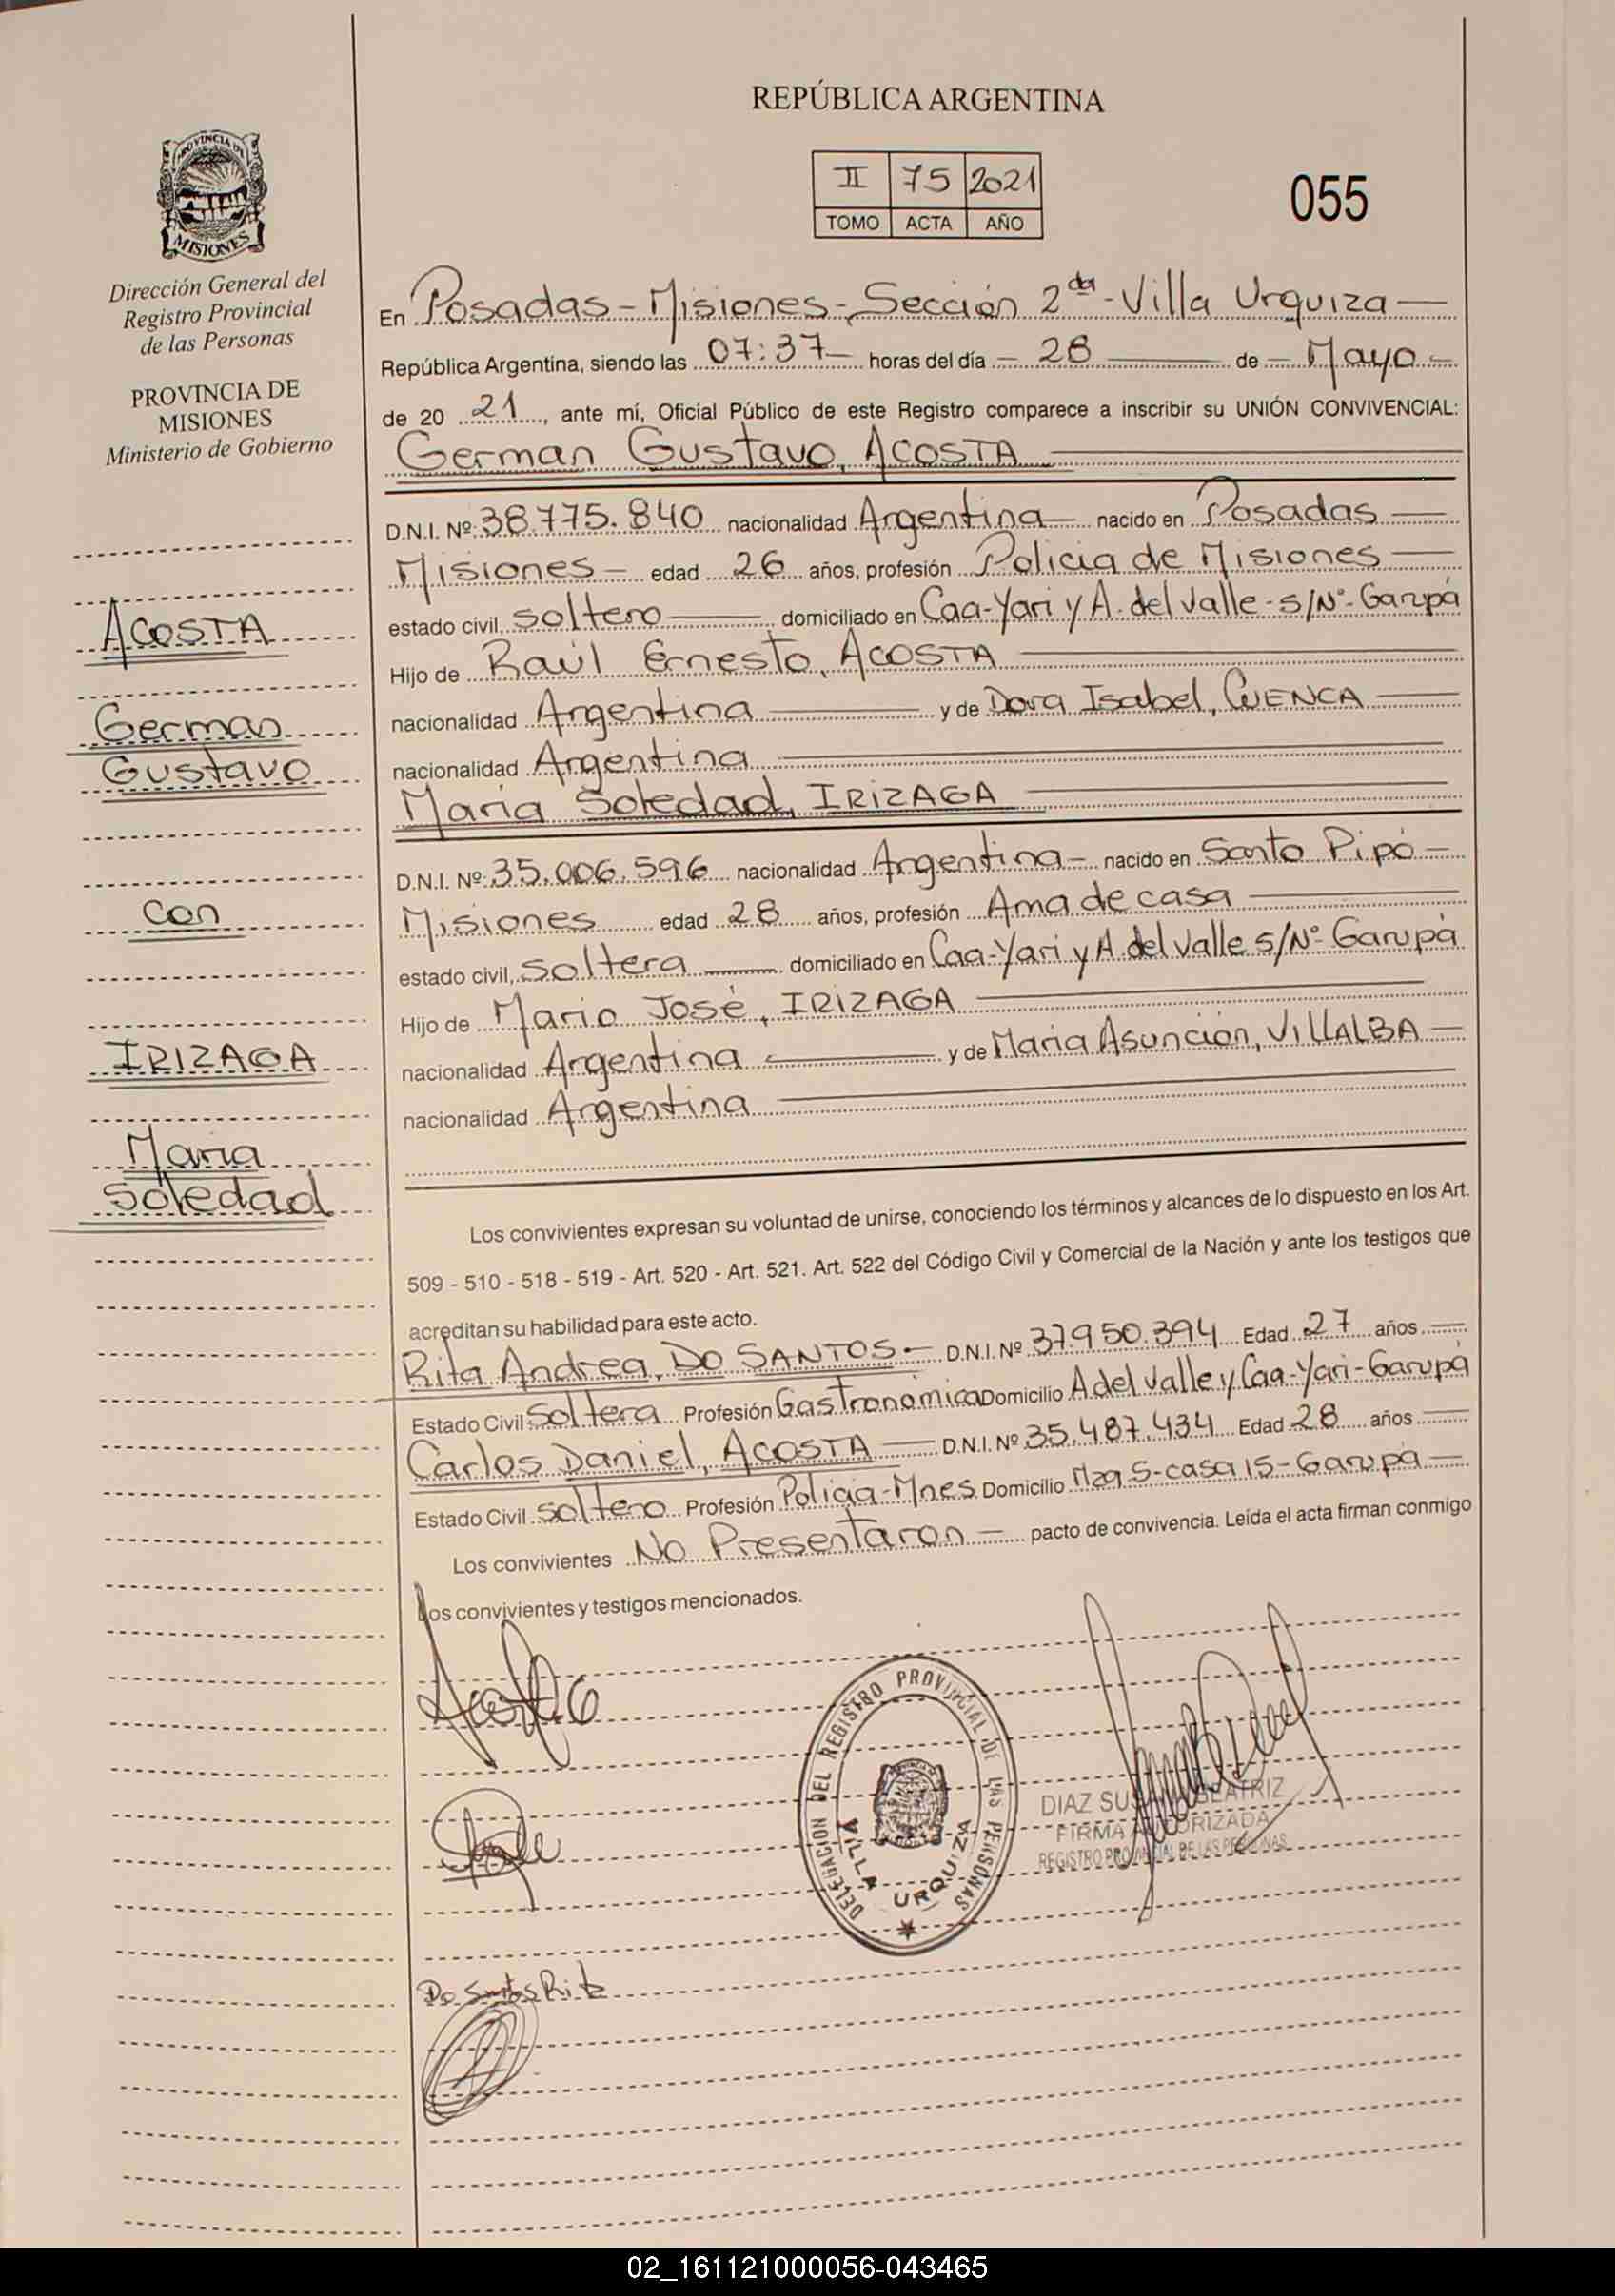 REPÚBLICA ARGENTINA
II 75 2021
TOMO ACTA AÑO
055
PROVINCIA DE
MISIONES
Dirección General del
Registro Provincial
de las Personas
PROVINCIA DE
MISIONES
Ministerio de Gobierno
ACOSTA
German
Gustavo
con
IRIZAGA
Maria
Soledad
En Posadas - Misiones - Sección 2da - Villa Urquiza
República Argentina, siendo las 07:37 horas del día 28 de Mayo
de 20 21, ante mí, Oficial Público de este Registro comparece a inscribir su UNIÓN CONVIVENCIAL:
German Gustavo, ACOSTA
D.N.I. Nº 38.775.840 nacionalidad Argentina nacido en Posadas
Misiones edad 26 años, profesión Policia de Misiones
estado civil, soltero domiciliado en Caa-Yari y A. del Valle - S/Nº - Garupá
Hijo de Raúl Ernesto, ACOSTA
nacionalidad Argentina y de Dora Isabel, CUENCA
nacionalidad Argentina
Maria Soledad, IRIZAGA
D.N.I. Nº 35.006.596 nacionalidad Argentina nacido en Santo Pipó
Misiones edad 28 años, profesión Ama de casa
estado civil, soltera domiciliado en Caa-Yari y A. del Valle S/Nº - Garupá
Hijo de Mario José, IRIZAGA
nacionalidad Argentina y de Maria Asunción, VILLALBA
nacionalidad Argentina
Los convivientes expresan su voluntad de unirse, conociendo los términos y alcances de lo dispuesto en los Art.
509 - 510 - 518 - 519 - Art. 520 - Art. 521. Art. 522 del Código Civil y Comercial de la Nación y ante los testigos que
acreditan su habilidad para este acto.
Rita Andrea, DO SANTOS - D.N.I. Nº 37.950.394 Edad 27 años
Estado Civil Soltera Profesión Gastronómica Domicilio A del Valle y Caa-Yari - Garupá
Carlos Daniel, ACOSTA D.N.I. Nº 35.487.434 Edad 28 años
Estado Civil soltero Profesión Policia - Mnes Domicilio Mza 5 - casa 15 - Garupá
Los convivientes No Presentaron pacto de convivencia. Leída el acta firman conmigo
Los convivientes y testigos mencionados.
DELEGACION DEL REGISTRO PROVINCIAL DE LAS PERSONAS
VILLA URQUIZA
DIAZ SUSANA BEATRIZ
FIRMA AUTORIZADA
REGISTRO PROVINCIAL DE LAS PERSONAS
Do Santos Rita
02_161121000056-043465